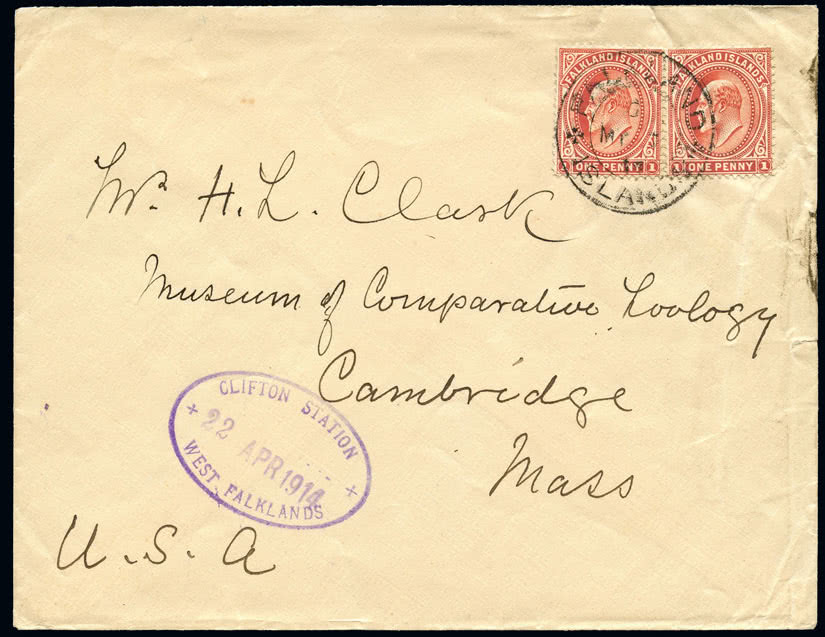 FALKLAND ISLANDS FALKLAND ISLANDS
1 ONE PENNY 1 1 ONE PENNY 1
FALKLAND ISLANDS
Mr. H. L. Clark
Museum of Comparative Zoology
Cambridge
Mass
U. S. A
CLIFTON STATION
22 APR 1914
WEST FALKLANDS